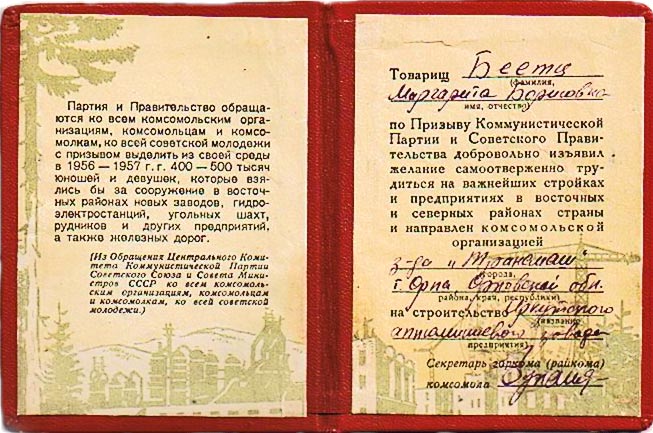 Партия и Правительство обраща-
ются ко всем комсомольским орга-
низациям, комсомольцам и комсо-
молкам, ко всей советской молодежи
с призывом выделить из своей среды
в 1956 — 1957 г. г. 400 — 500 тысяч
юношей и девушек, которые взя-
лись бы за сооружение в восточ-
ных районах новых заводов, гидро-
электростанций, угольных шахт,
рудников и других предприятий,
а также железных дорог.
(Из Обращения Центрального Коми-
тета Коммунистической Партии
Советского Союза и Совета Мини-
стров СССР ко всем комсомоль-
ским организациям, комсомольцам
и комсомолкам, ко всей советской
молодежи.)
Товарищ Беетц
(фамилия,
Маргарита Борисовна
имя, отчество)
по Призыву Коммунистической
Партии и Советского Прави-
тельства добровольно изъявил
желание самоотверженно тру-
диться на важнейших стройках
и предприятиях в восточных
и северных районах страны
и направлен комсомольской
организацией
з-да „Трансмаш"
(города,
г. Орла Орловской обл.
района, края, республики)
на строительство Иркутского
(название
алюминиевого завода
предприятия)
Секретарь горкома (райкома)
комсомола